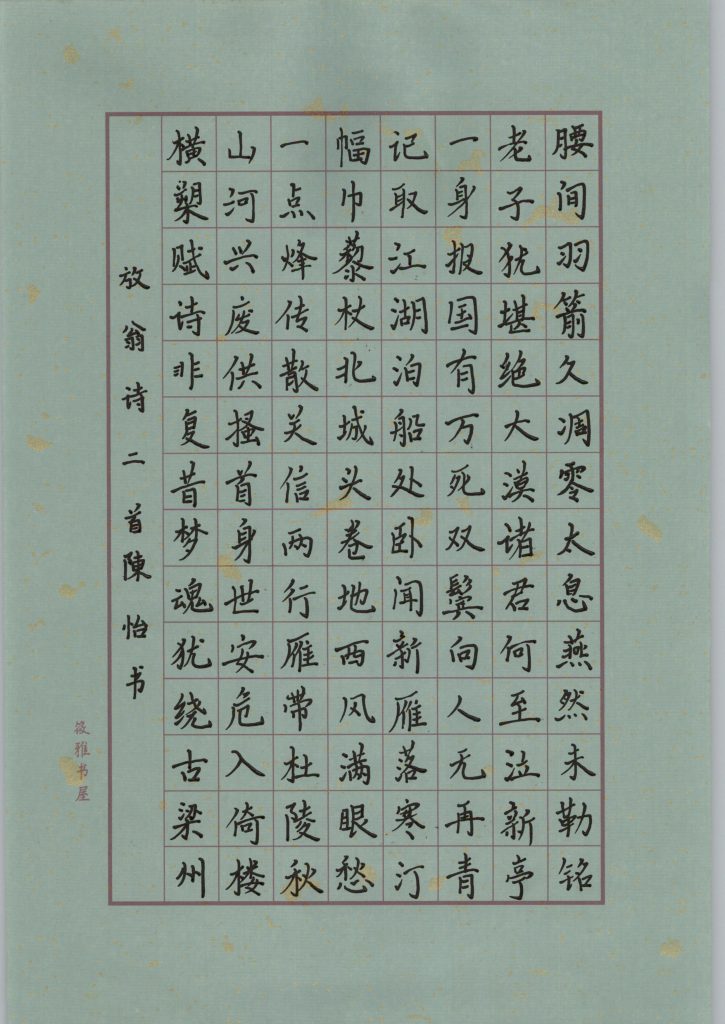 腰间羽箭久凋零太息燕然未勒铭
老子犹堪绝大漠诸君何至泣新亭
一身报国有万死双鬓向人无再青
记取江湖泊船处卧闻新雁落寒汀
幅巾藜杖北城头卷地西风满眼愁
一点烽传散关信两行雁带杜陵秋
山河兴废供搔首身世安危入倚楼
横槊赋诗非复昔梦魂犹绕古梁州
放翁诗二首陳怡书
筱雅书屋